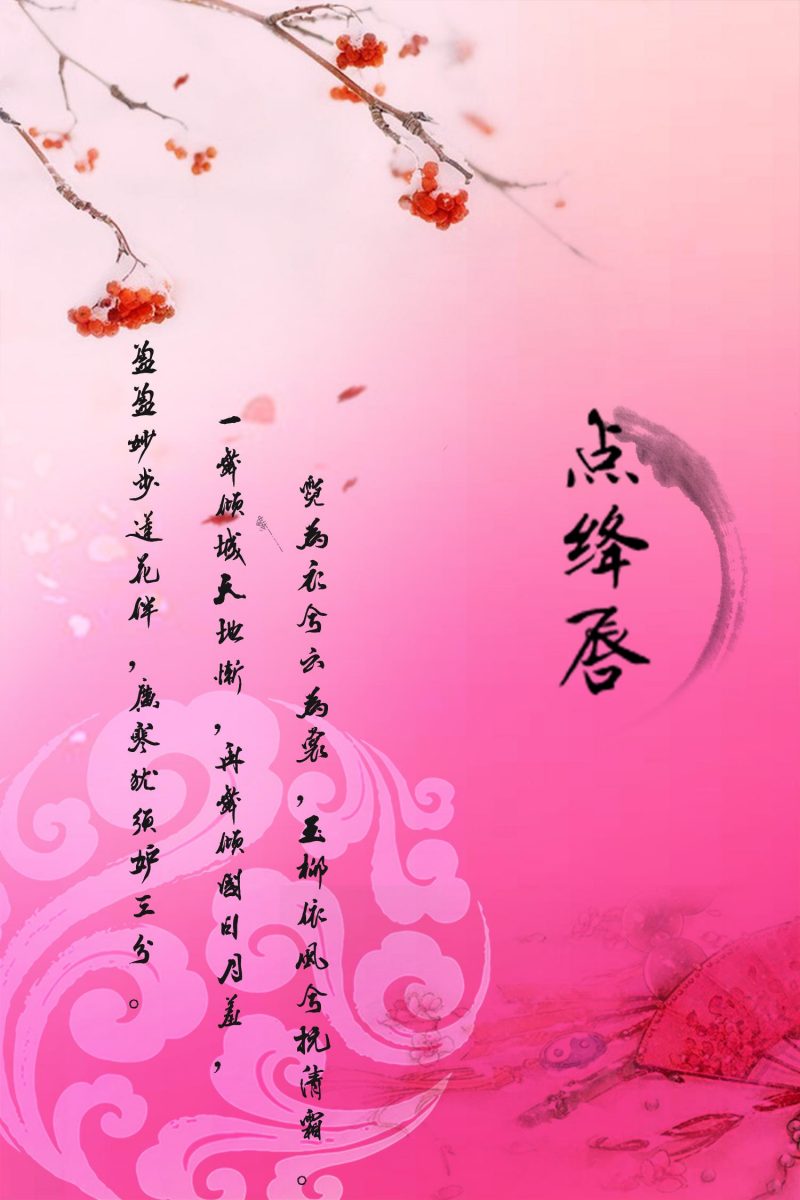 点绛唇
霓为衣兮云为裳，玉柳依风兮挽清霜。
一舞倾城天地惭，再舞倾國日月羞，
盈盈妙步莲花伴，廣寒犹须妒三分。